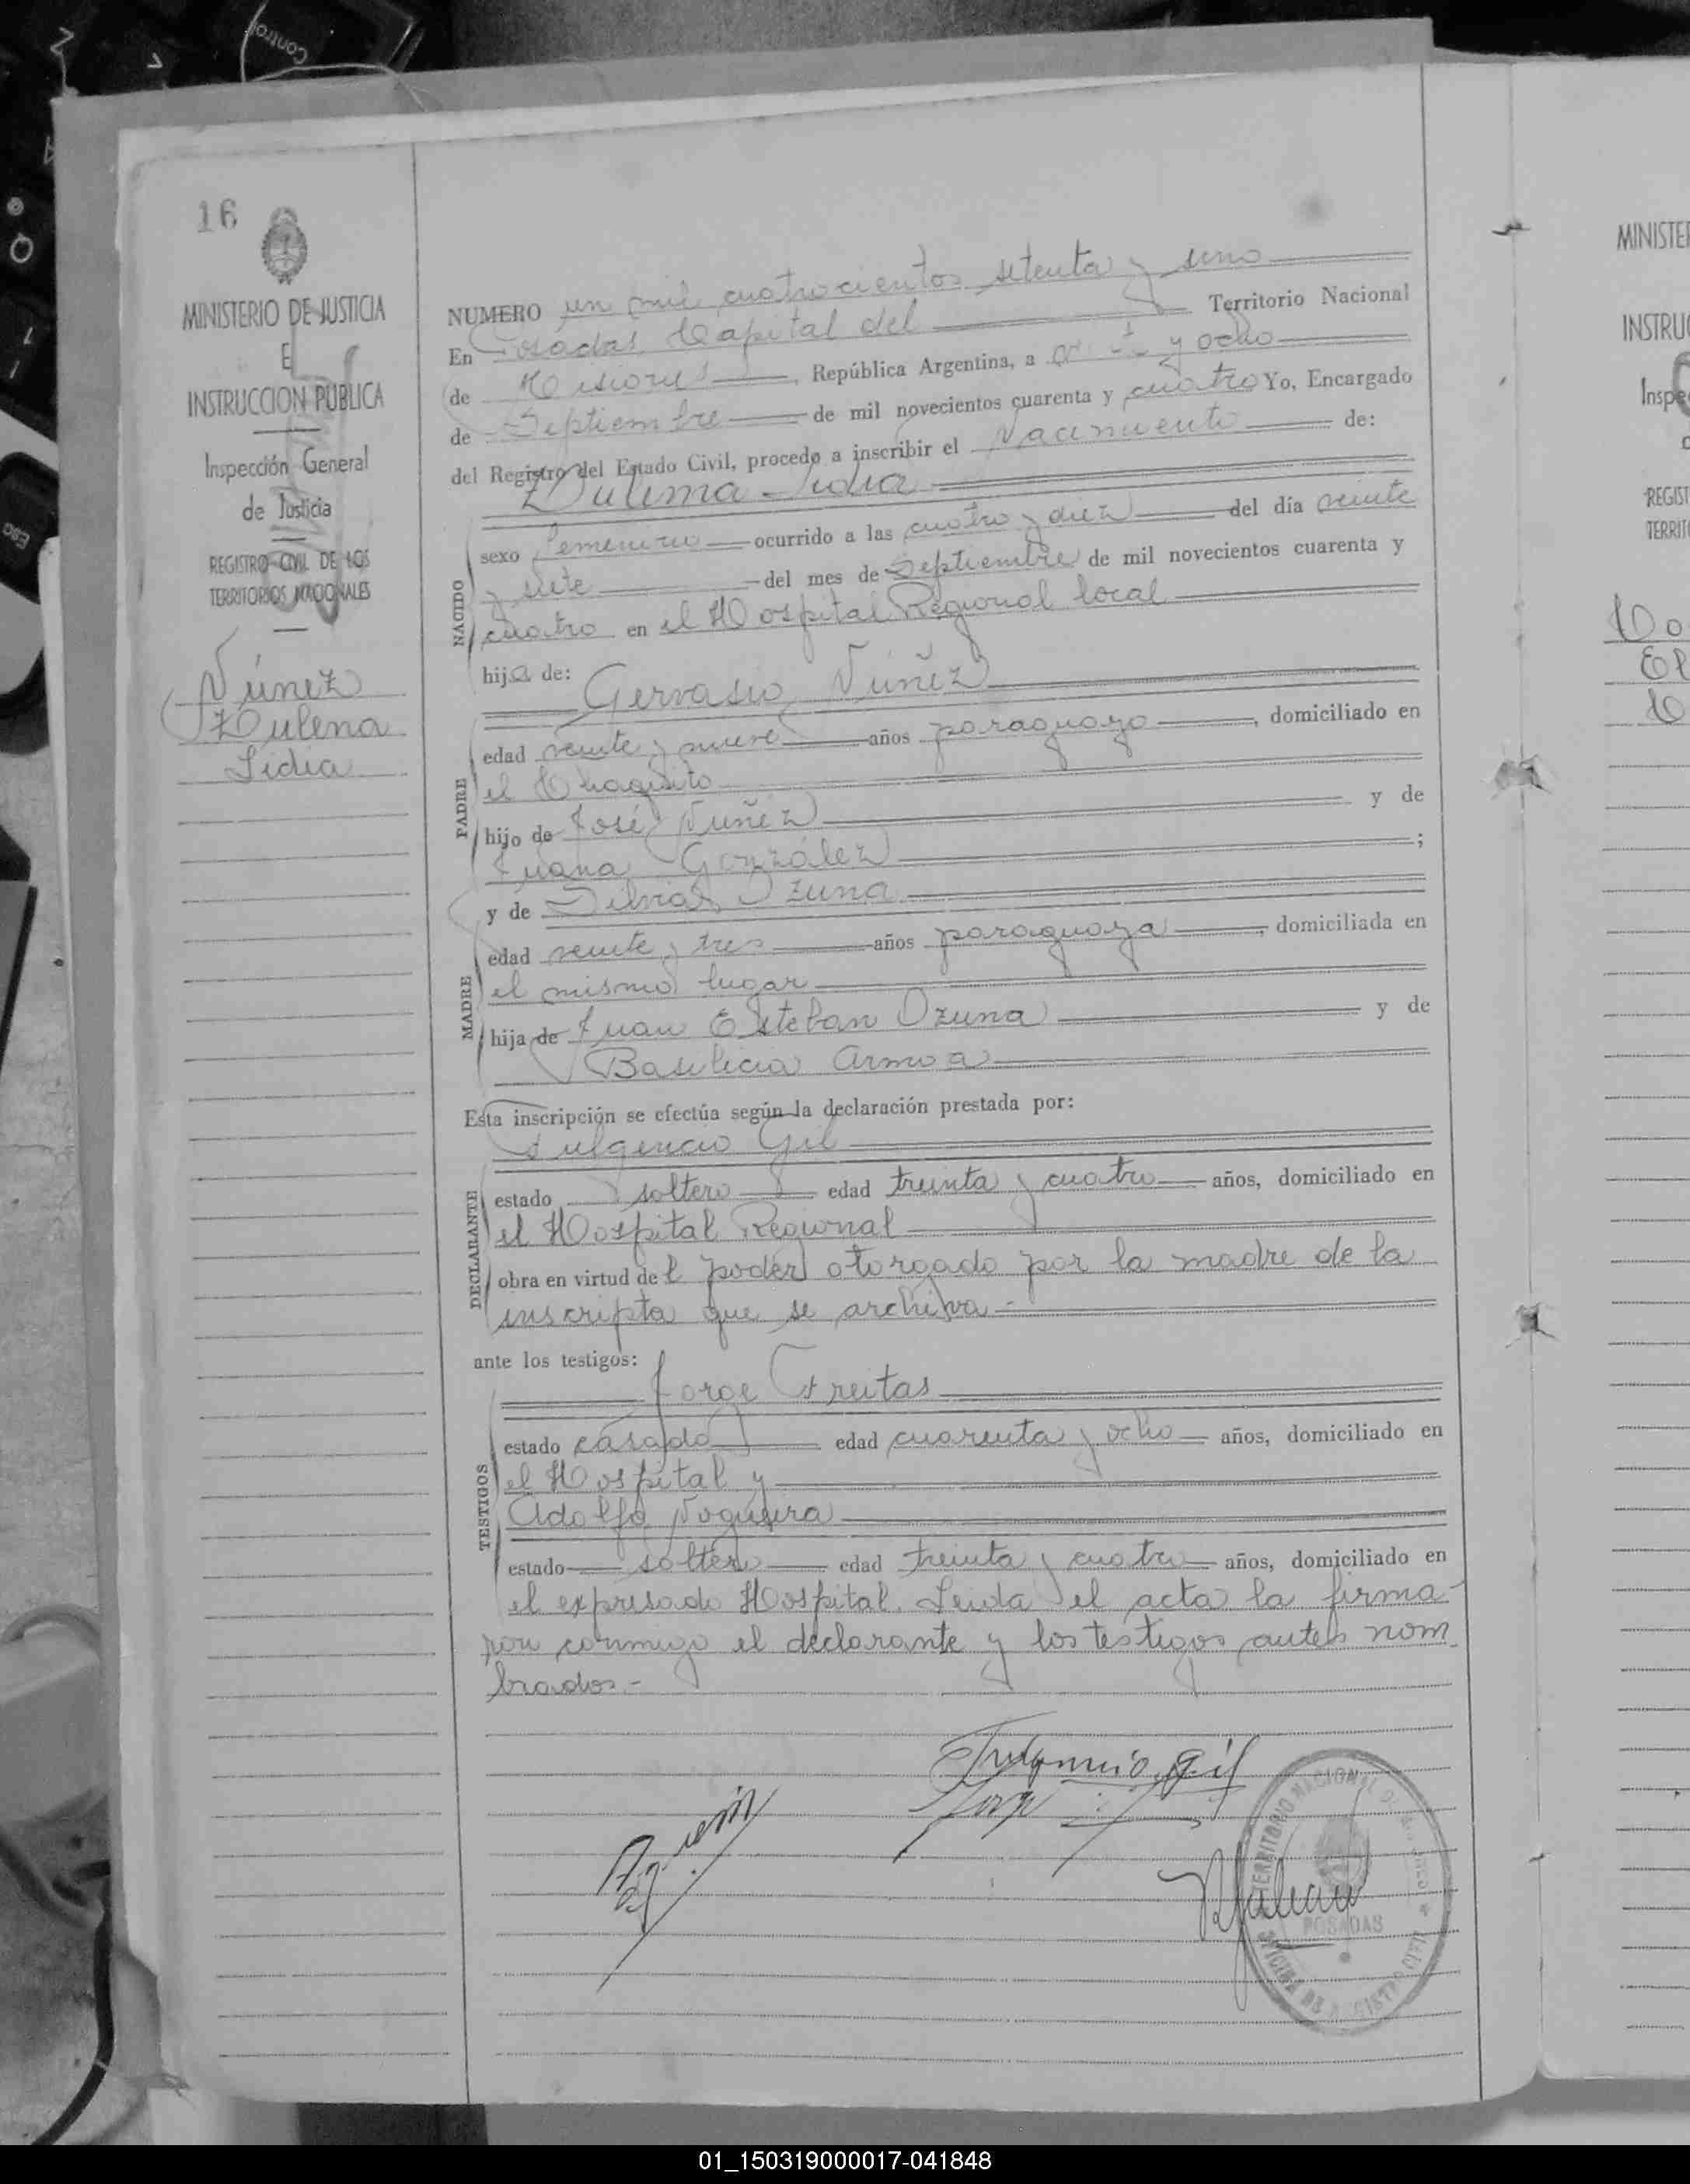 Control
Esc
16
MINISTERIO DE JUSTICIA
E
INSTRUCCION PUBLICA
Inspección General
de Justicia
REGISTRO CIVIL DE LOS
TERRITORIOS NACIONALES
Núnez
Zulena
Lidia
NUMERO un mil cuatrocientos setenta y uno
En Posadas Capital del Territorio Nacional
de Misiones, República Argentina, a y ocho
de Septiembre de mil novecientos cuarenta y cuatro Yo, Encargado
del Registro del Estado Civil, procedo a inscribir el Nacimiento de:
Zulema Lidia
NACIDO
sexo Femenino ocurrido a las cuatro y diez del día veinte
y siete del mes de Septiembre de mil novecientos cuarenta y
cuatro en el Hospital Regional local
hija de:
Gervasio Núñez
PADRE
edad veinte y nueve años paraguayo, domiciliado en
el Chaquito
hijo de José Núñez y de
Juana González ;
y de Silvia Ozuna
MADRE
edad veinte y tres años paraguaya, domiciliada en
el mismo lugar
hija de Juan Esteban Ozuna y de
Basilicia Armoa
Esta inscripción se efectúa según la declaración prestada por:
Fulgencio Gil
DECLARANTE
estado soltero edad treinta y cuatro años, domiciliado en
el Hospital Regional
obra en virtud del poder otorgado por la madre de la
inscripta que se archiva -
ante los testigos:
Jorge Freitas
TESTIGOS
estado casado edad cuarenta y ocho años, domiciliado en
el Hospital y
Adolfo Noguera
estado soltero edad treinta y cuatro años, domiciliado en
el expresado Hospital. Leida el acta la firma-
ron conmigo el declarante y los testigos antes nom
brados.-
Fulgencio Gil
Jorge
TERRITORIO NACIONAL DE MISIONES
POSADAS
OFICINA DE REGISTRO CIVIL
MINISTE
INSTRU
Inspe
REGIST
TERRIT
01_150319000017-041848